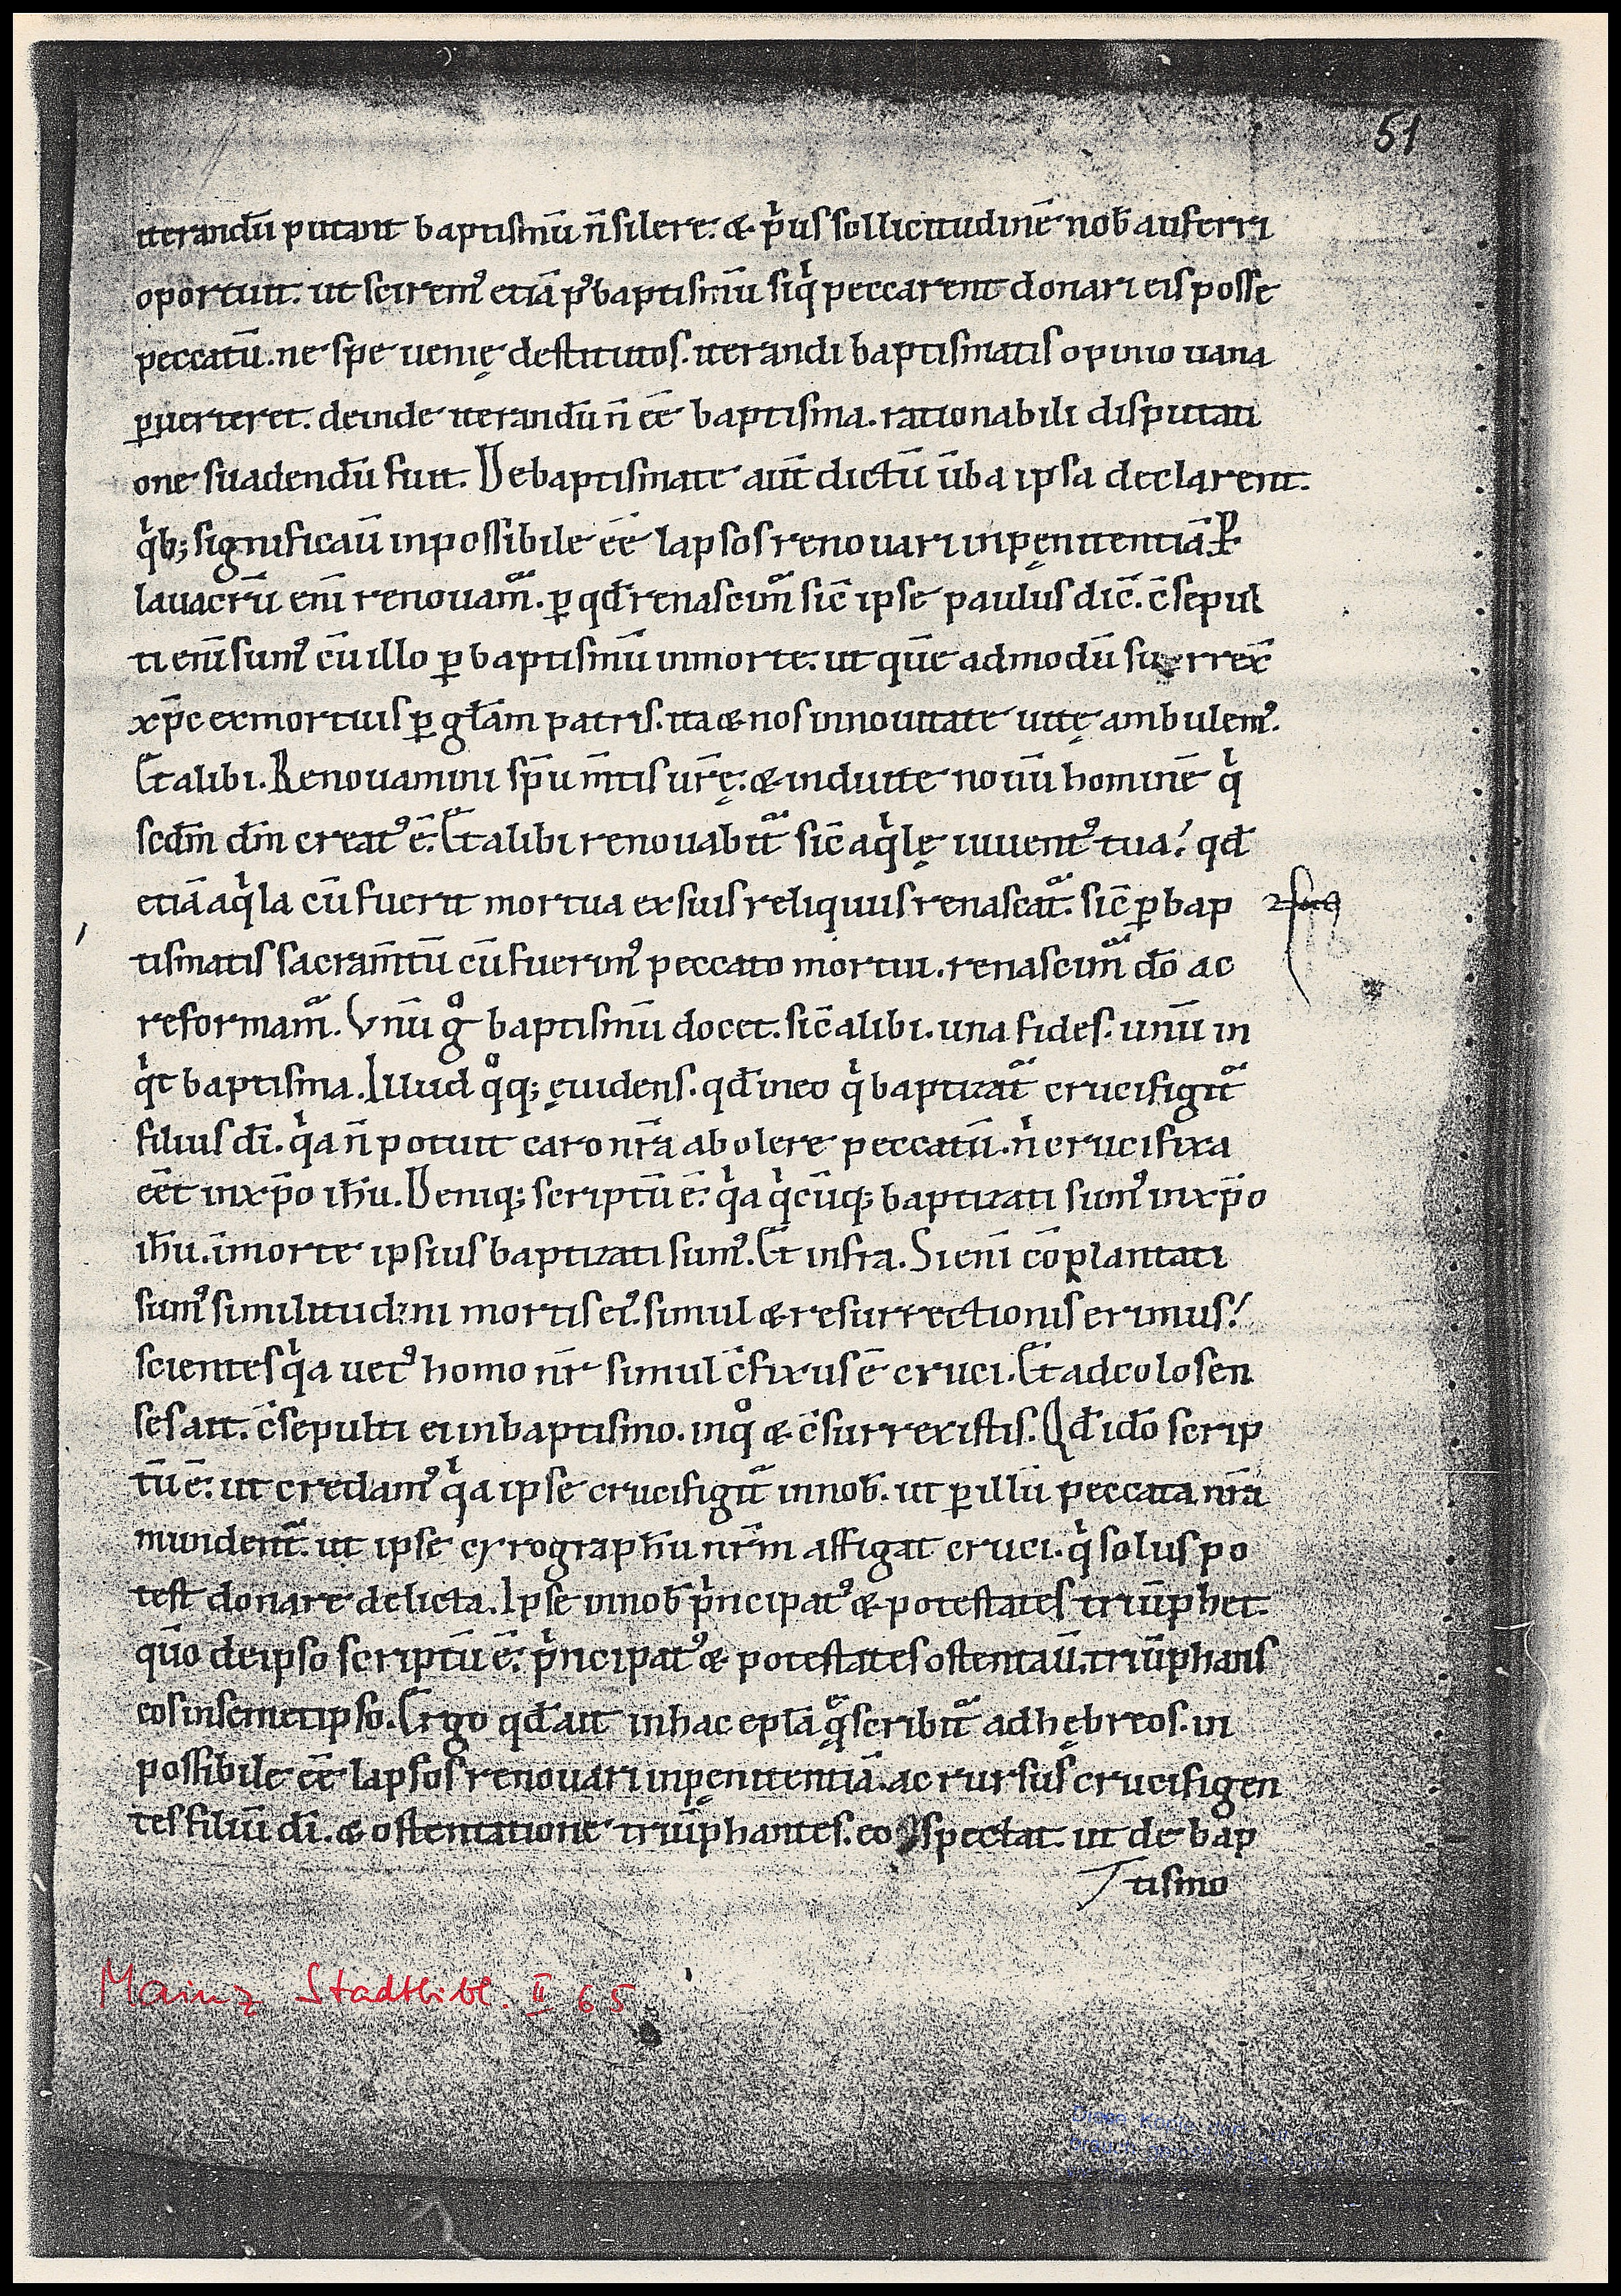 51
iterandū putant baptismū n̄ silere. & p̍us sollicitudinē nob̄ auferri
oportuit. ut sciremꝰ etiā pꝰ baptismū siq̍ peccarent donari eis posse
peccatū. ne spe uenię destitutos. iterandi baptismatis opinio uana
ꝑuerteret. deinde iterandū n̄ eē baptisma. rationabili disputati
one suadendū fuit. De baptismate aut̄ dictū ūba ipsa declarent.
q̍b; significauī inpossibile eē lapsos renouari inpęnitentiā. ꝑ
lauacrū enī renouam̃. ꝑ qd̄ renascim̃ sic̄ ipse paulus dic̄. c̄sepul
ti enī sumꝰ cū illo ꝑ baptismū inmorte. ut quē admodū surrex̄
xp̄c exmortuis ꝑ gl̄am patris. ita & nos innouitate uitę ambulemꝰ.
Et alibi. Renouamini sp̄u m̄tis ur̄ę. & induite nouū hominē q̍
scdm̄ dm̄ creatꝰ ē. Et alibi renouabit̃ sic̄ aq̍lę iuuentꝰ tua! qd̄
etiā aq̍la cū fuerit mortua ex suis reliquiis renascat̃. sic̄ ꝑ bap
tismatis sacram̄tū cū fuerimꝰ peccato mortui. renascim̃ dō ac
reformam̃. Vnū gͦ baptismū docet. sic̄ alibi. una fides. unū in
q̍t baptisma. Illud qͦq; ęuidens. qd̄ ineo q̍ baptizat̃ crucifigit̃
filius dī. q̍a n̄ potuit caro nr̄a abolere peccatū. n̍ crucifixa
eēt inxp̄o ih̄u. Deniq; scriptū ē. q̍a q̍cūq; baptizati sumꝰ inxp̄o
ih̄u. īmorte ipsius baptizati sumꝰ. Et infra. Si enī cōplantati
sumꝰ similitudini mortis eiꝰ. simul & resurrectionis erimus!
scientes q̍a uetꝰ homo nr̄ simul c̄fixus ē cruci. Et adcolosen
ses ait. c̄sepulti ei inbaptismo. inqͦ & c̄surrexistis. Qd̄ idō scrip
tū ē. ut credamꝰ q̍a ipse crucifigit̃ innob̄. ut ꝑ illū peccata nr̄a
mundent̃. ut ipse cyrograph̄u nr̄m affigat cruci. q̍ solus po
test donare delicta. Ipse innob̄ p̍ncipatꝰ & potestates triūphet.
qūo deipso scriptū ē. p̍ncipatꝰ & potestates ostentauī. triūphans
eos insemetipso. Ergo qd̄ ait inhac epl̄a q̃ scribit̃ adhębreos. in
possibile eē lapsos renouari inpęnitentiā. ac rursus crucifigen
tes filiū dī. & ostentatione triūphantes. eo spectat. ut de bap
tismo
Mainz Stadtbibl. II 65